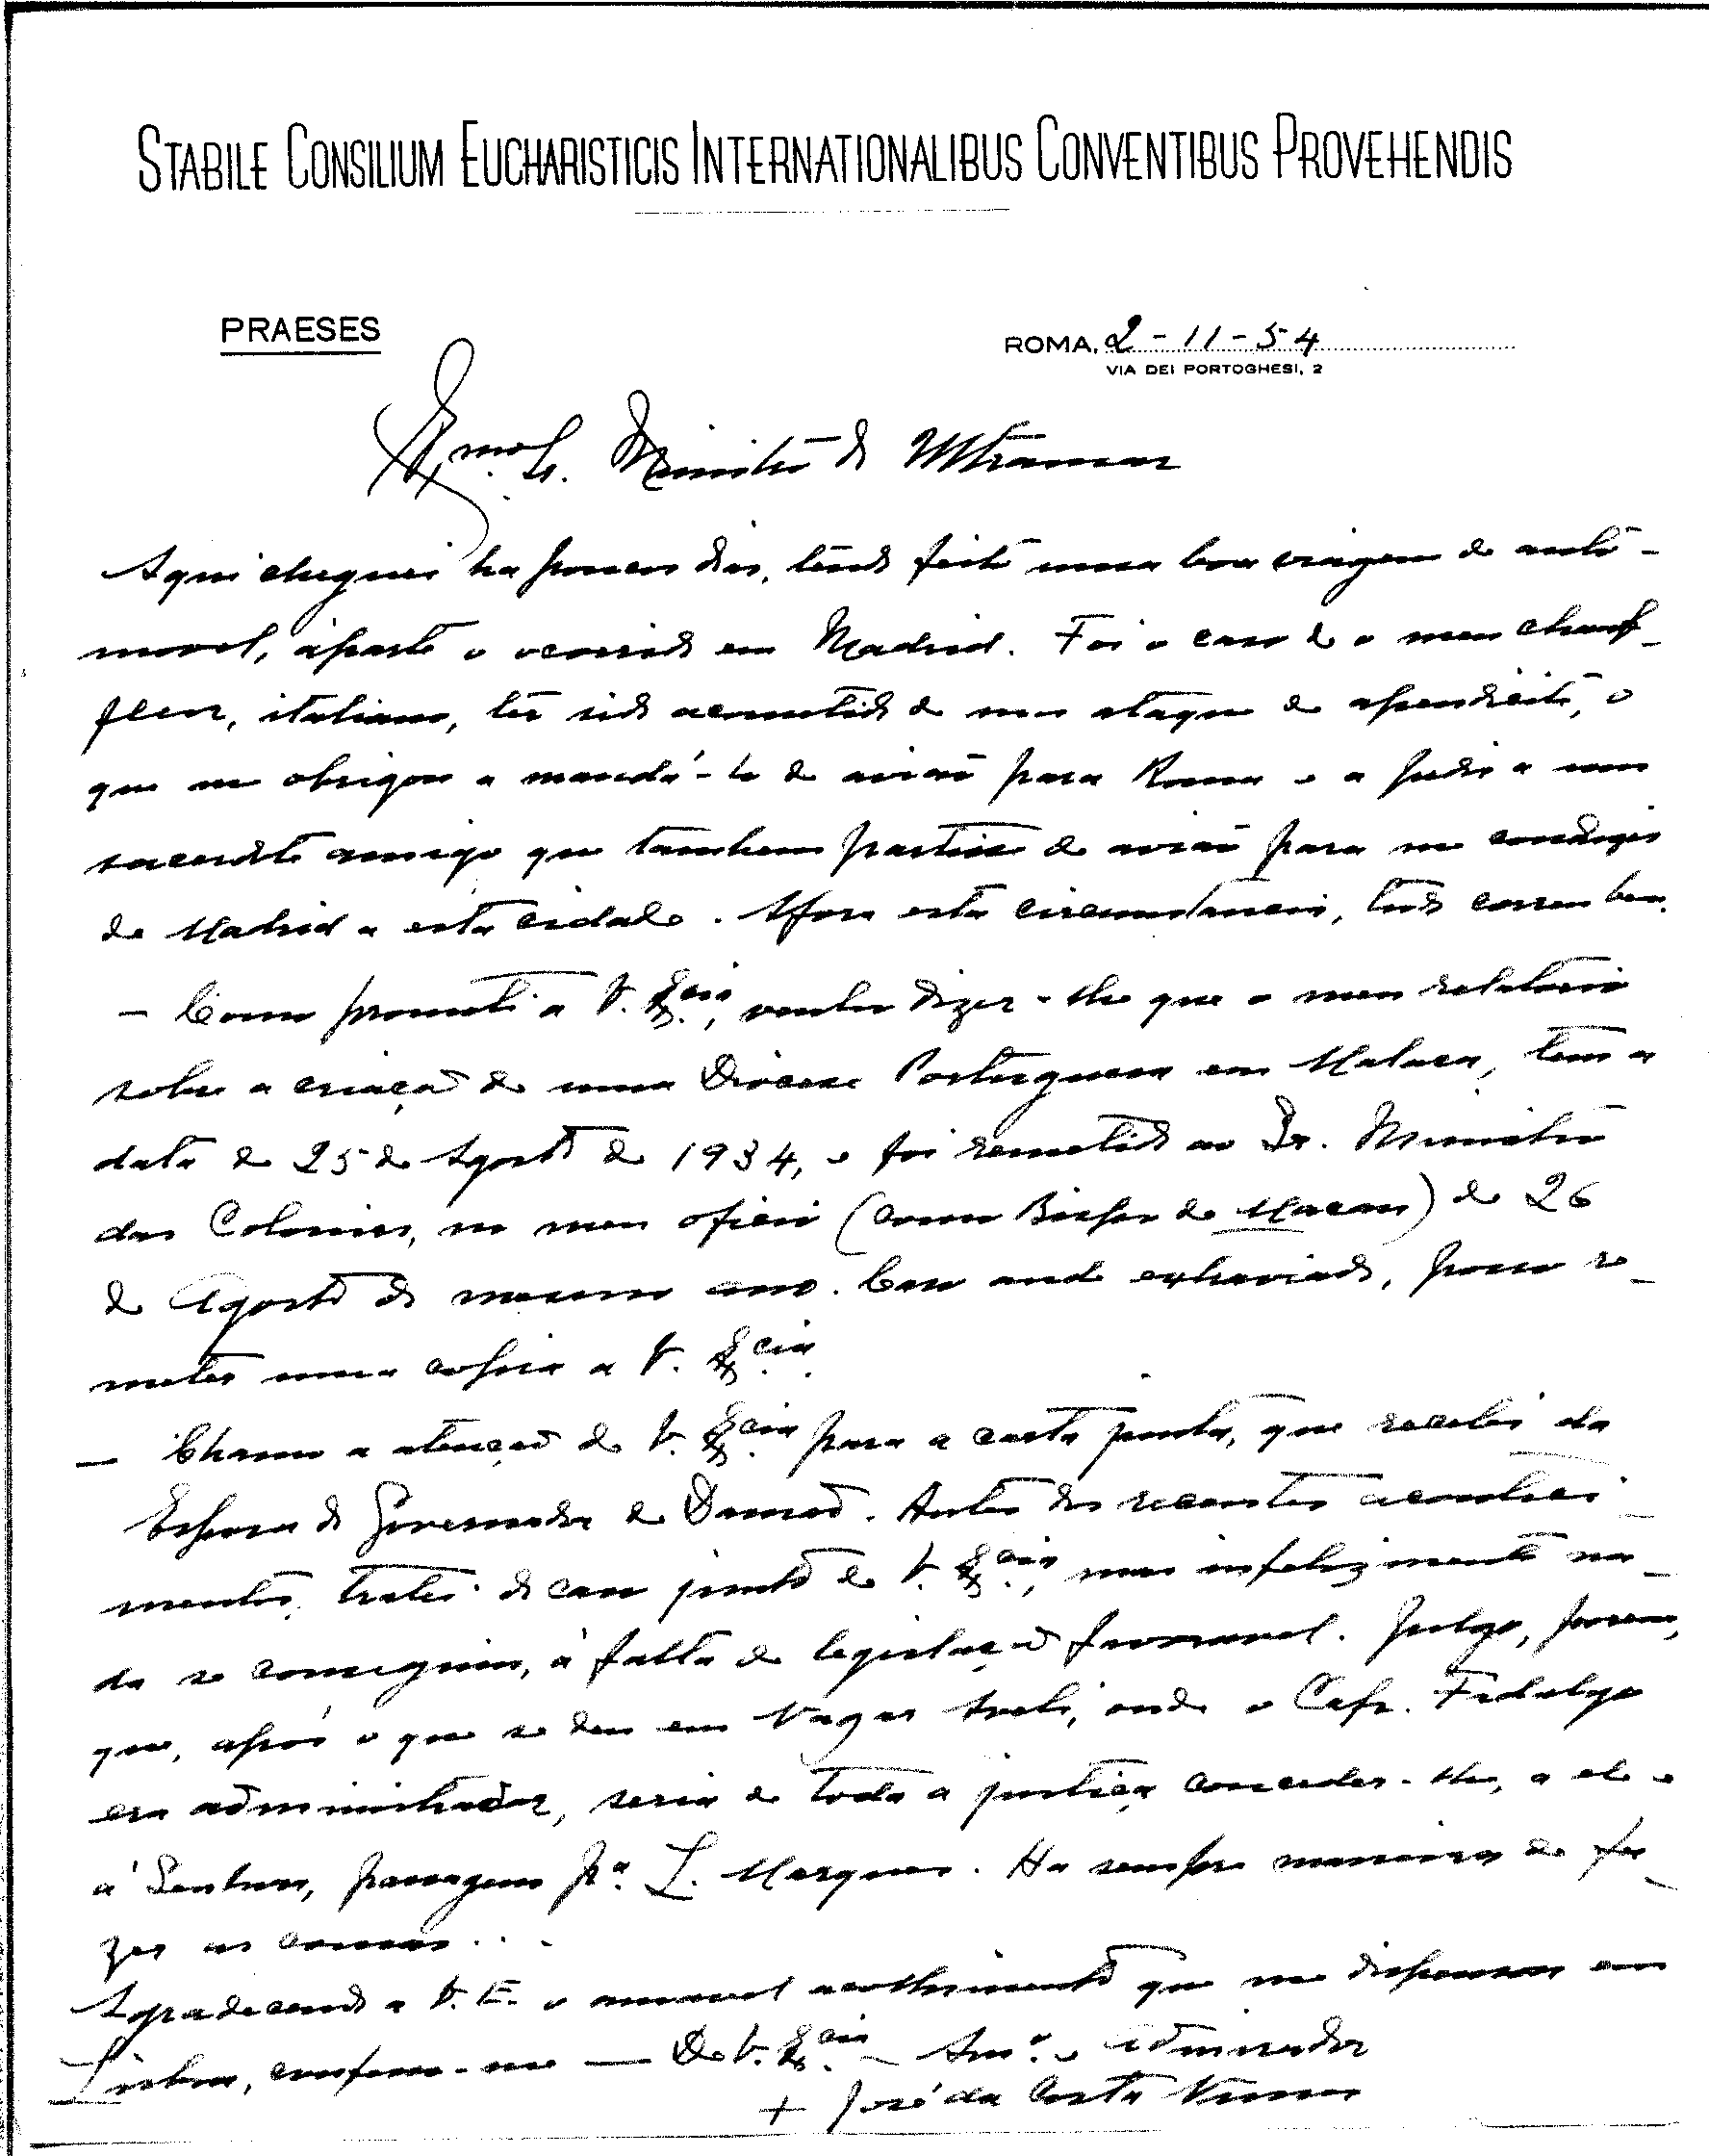 STABILE CONSILIUM EUCHARISTICIS INTERNATIONALIBUS CONVENTIBUS PROVEHENDIS
PRAESES
ROMA, 2-11-54
VIA DEI PORTOGHESI, 2
Exmo. Sr. Ministro do Ultramar
Aqui cheguei ha poucos dias, tendo feito uma boa viagem de auto-
movel, áparte o ocorrido em Madrid. Foi o caso de o meu chauf-
feur, italiano, ter sido acometido de um ataque de apendicite, o
que me obrigou a mandá-lo de avião para Roma e a pedir a um
sacerdote amigo que tambem partisse de avião para me conduzir
de Madrid a esta cidade. Afora esta circunstancia, tudo correu bem.
— Como prometi a V. Excia., venho dizer-lhe que o meu relatorio
sobre a criação de uma Diocese Portuguesa em Malaca, tem a
data de 25 de Agosto de 1934, e foi remetido ao Sr. Ministro
das Colonias, no meu oficio (como Bispo de Macau) de 26
de Agosto do mesmo ano. Caso ande extraviado, posso re-
meter uma copia a V. Excia.
— Chamo a atenção de V. Excia. para a carta junta, que recebi da
Esposa do Governador de Damão. Antes dos recentes aconteci-
mentos, tratei do caso junto de V. Excia., mas infelizmente na-
da se conseguiu, á falta de legislação favoravel. Julgo, porem,
que, após o que se deu em Nagar Aveli, onde o Cap. Fidalgo
era administrador, seria de toda a justiça conceder-lhe, a ele e
á Senhora, passagem pa. L. Marques. Ha sempre maneira de fa-
zer as cousas...
Agradecendo a V. E. o amavel acolhimento que me dispensou em
Lisboa, confesso-me — De V. Excia. — Amo. e admirador
+ José da Costa Nunes